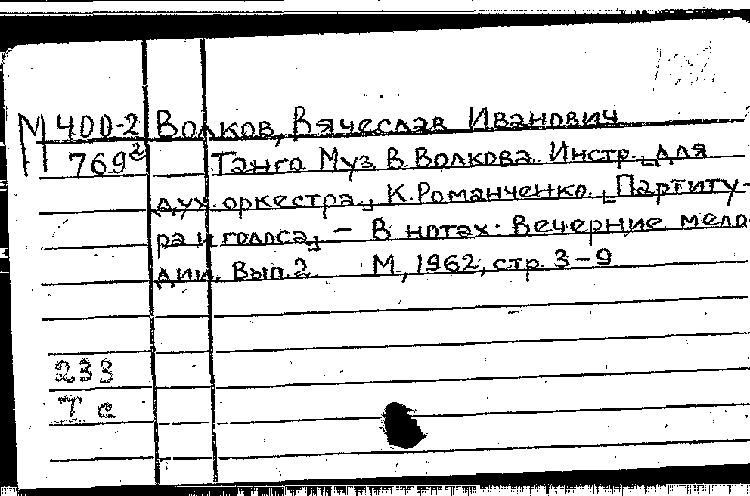 М 400-2 Волков, Вячеслав Иванович
769² Танго Муз В Волкова. Инстр. [для
дух. оркестра], К. Романченко. [Партиту-
ра и голоса] – В нотах: Вечерние мело-
дии. Вып. 2 М, 1962, стр. 3-9
233
Т е